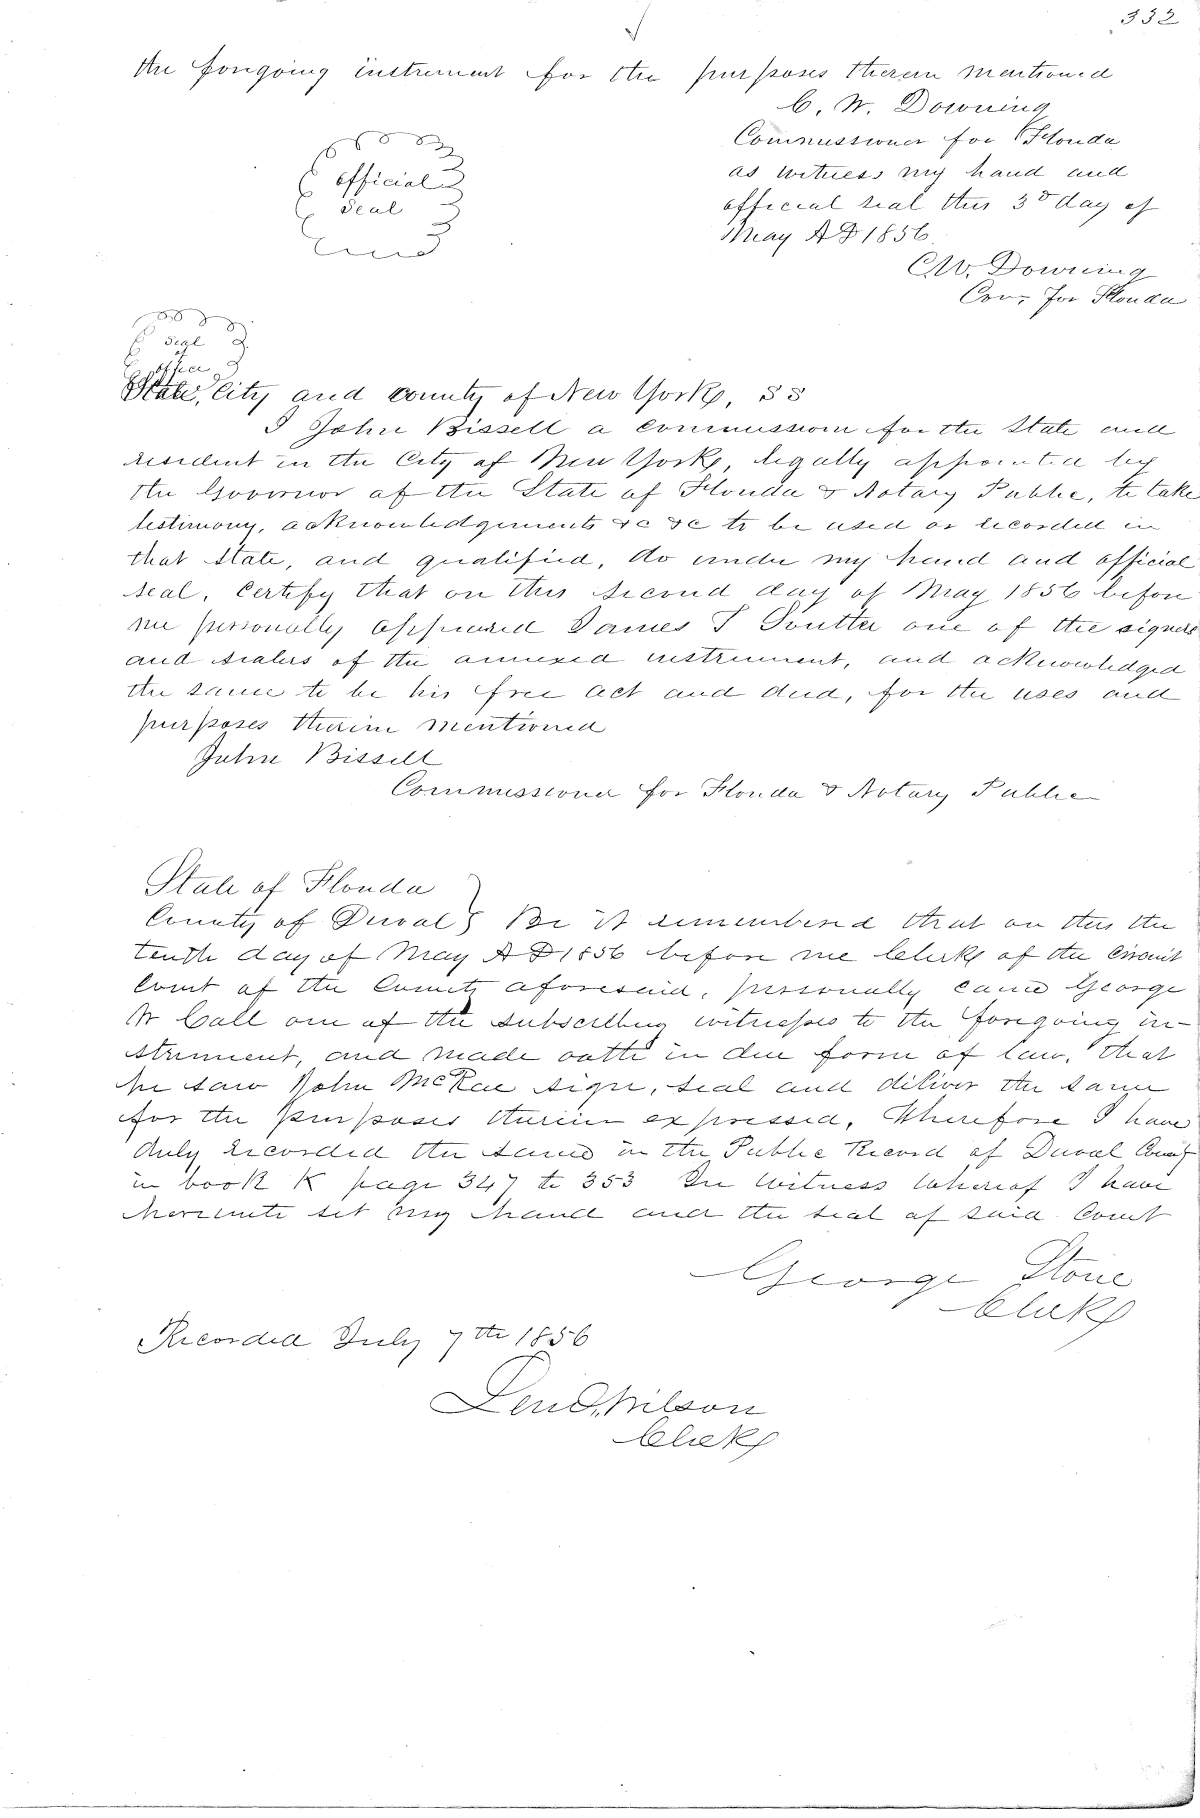 332
the foregoing instrument for the purposes therein mentioned
C. W. Downing
Commissioner for Florida
as witness my hand and
official seal this 3d day of
May AD 1856
official
seal
C.W. Downing
Com. for Florida
seal
of
office
State, City and county of New York, SS
I John Bissell a commissioner for the State and
resident in the City of New York, legally appointed by
the Governor of the State of Florida & Notary Public, to take
testimony, acknowledgements &c &c to be used or recorded in
that State, and qualified, do under my hand and official
seal, certify that on this second day of May 1856 before
me personally appeared James T Soutter one of the signers
and sealers of the annexed instrument, and acknowledged
the same to be his free act and deed, for the uses and
purposes therein mentioned
John Bissell
Commissioner for Florida & Notary Public
State of Florida
County of Duval } Be it remembered that on this the
tenth day of May AD 1856 before me Clerk of the circuit
Court of the County aforesaid, personally came George
W Call one of the subscribing witnesses to the foregoing in-
strument, and made oath in due form of law, that
he saw John McRae sign, seal and deliver the same
for the purposes therein expressed, Wherefore I have
duly recorded the same in the Public Record of Duval County
in book K page 347 to 353 In Witness whereof I have
hereunto set my hand and the seal of said Court
George Stone
Clerk
Recorded July 7th 1856
Wilson
Clerk